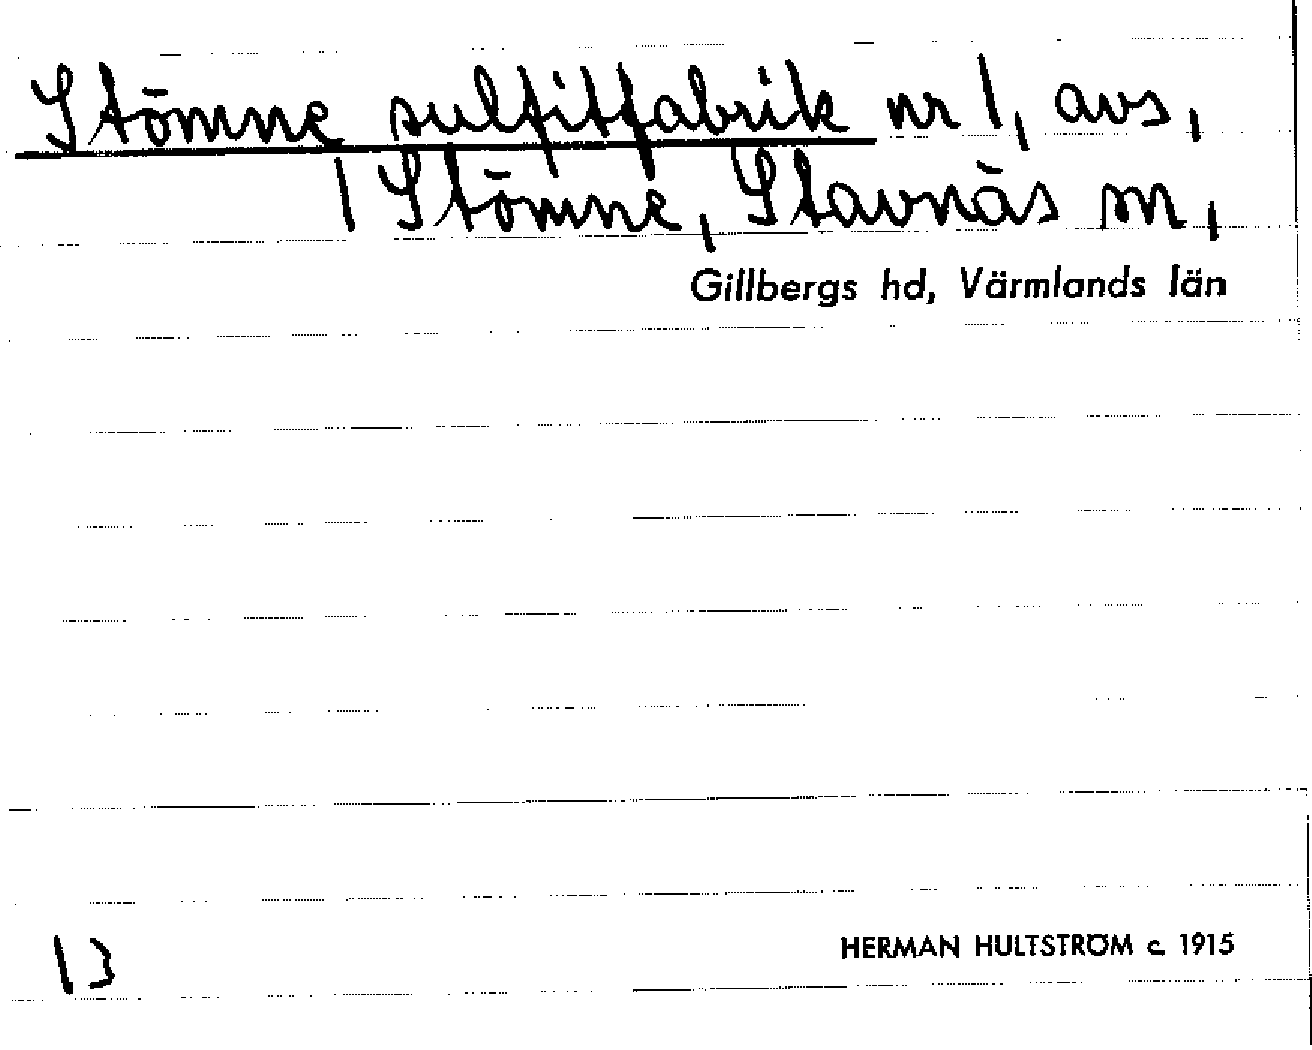 Stömne sulfitfabrik nr 1, avs,
1 Stömne, Stavnäs sn,
Gillbergs hd, Värmlands län
13
HERMAN HULTSTRÖM c. 1915